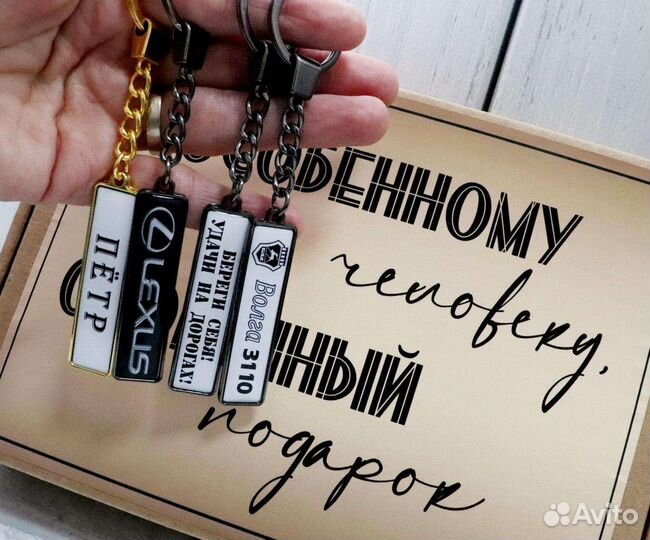 ПЁТР
LEXUS
БЕРЕГИ СЕБЯ!
УДАЧИ НА ДОРОГАХ!
Волга 3110
ОСОБЕННОМУ
человеку,
подарок
Avito